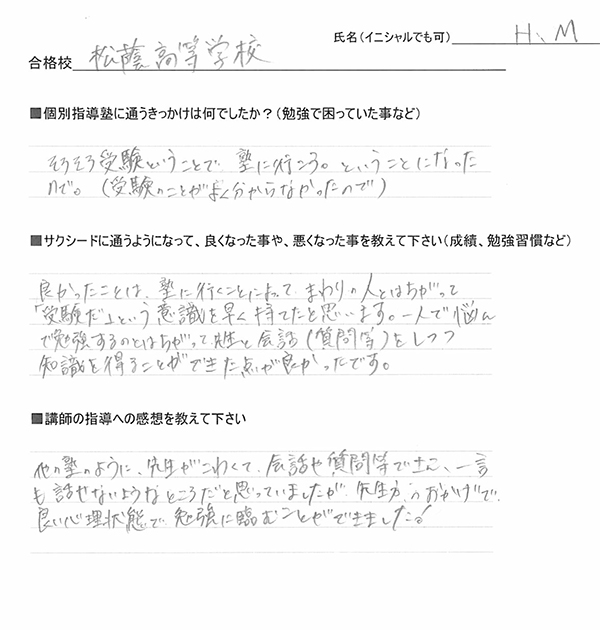 氏名（イニシャルでも可） H、M
合格校 松蔭高等学校
■個別指導塾に通うきっかけは何でしたか？（勉強で困っていた事など）
そろそろ受験ということで、塾に行こう。ということになった
ので。（受験のことがよく分からなかったので）
■サクシードに通うようになって、良くなった事や、悪くなった事を教えて下さい（成績、勉強習慣など）
良かったことは、塾に行くことによって、まわりの人とはちがって
「受験だ」という意識を早く持てたと思います。一人で悩ん
で勉強するのとはちがって先生と会話（質問等）をしつつ
知識を得ることができた点が良かったです。
■講師の指導への感想を教えて下さい
他の塾のように、先生がこわくて、会話や質問等できず、一言
も話せないようなところだと思っていましたが、先生方のおかげで、
良い心理状態で、勉強に臨むことができました！